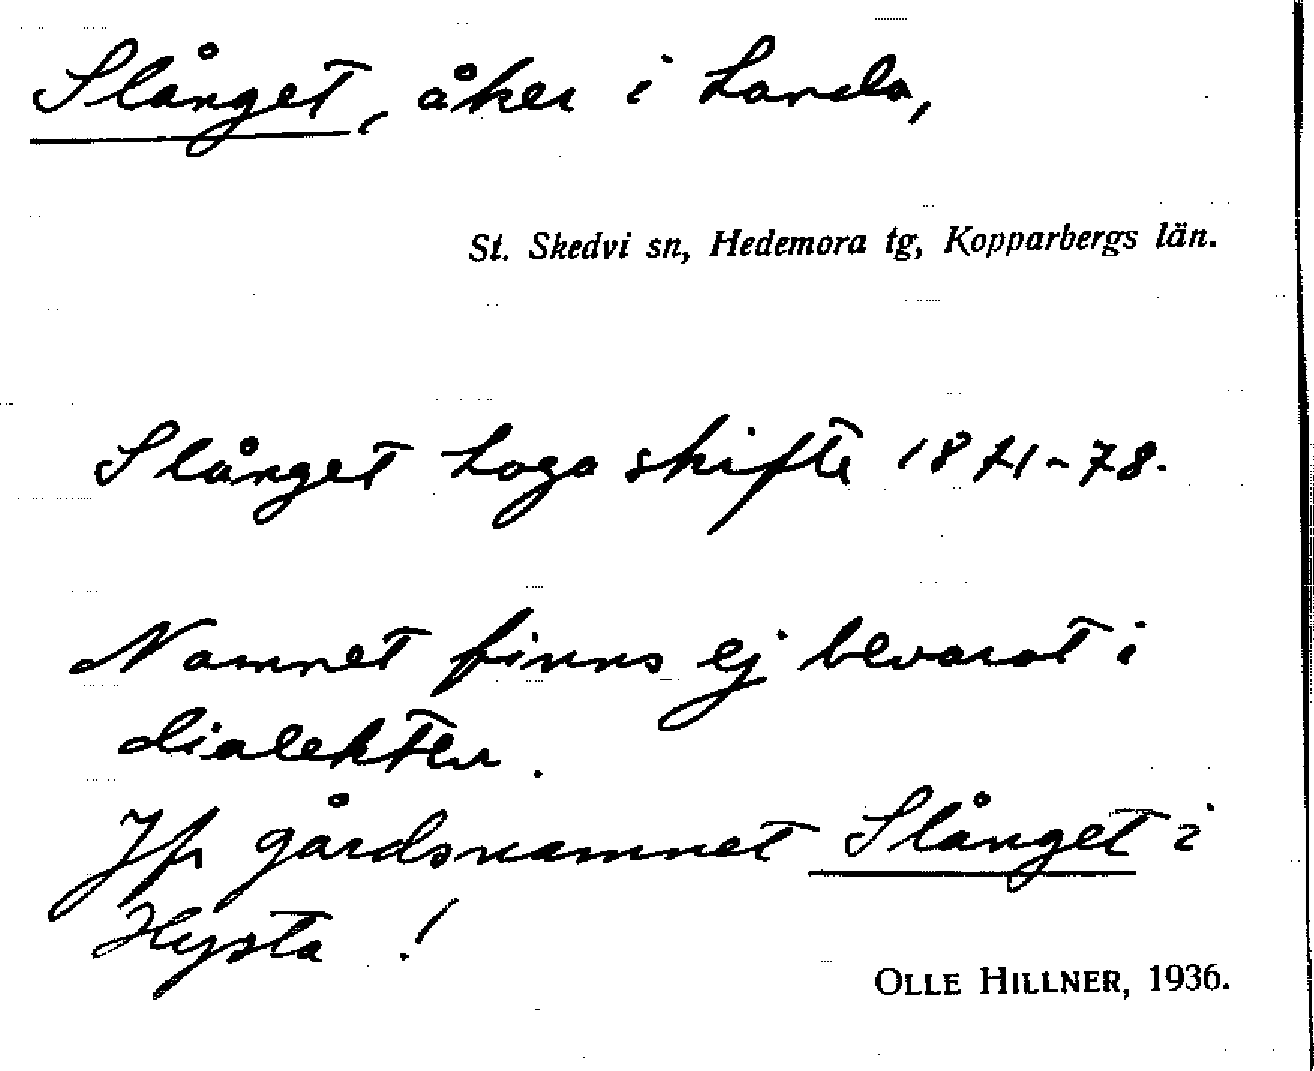 Slånget, åker i Landa,
St. Skedvi sn, Hedemora tg, Kopparbergs län.
Slånget Laga skifte 1871-78.
Namnet finns ej bevarat i
dialekten.
Jfr gårdsnamnet Slånget i
Hysta!
OLLE HILLNER, 1936.